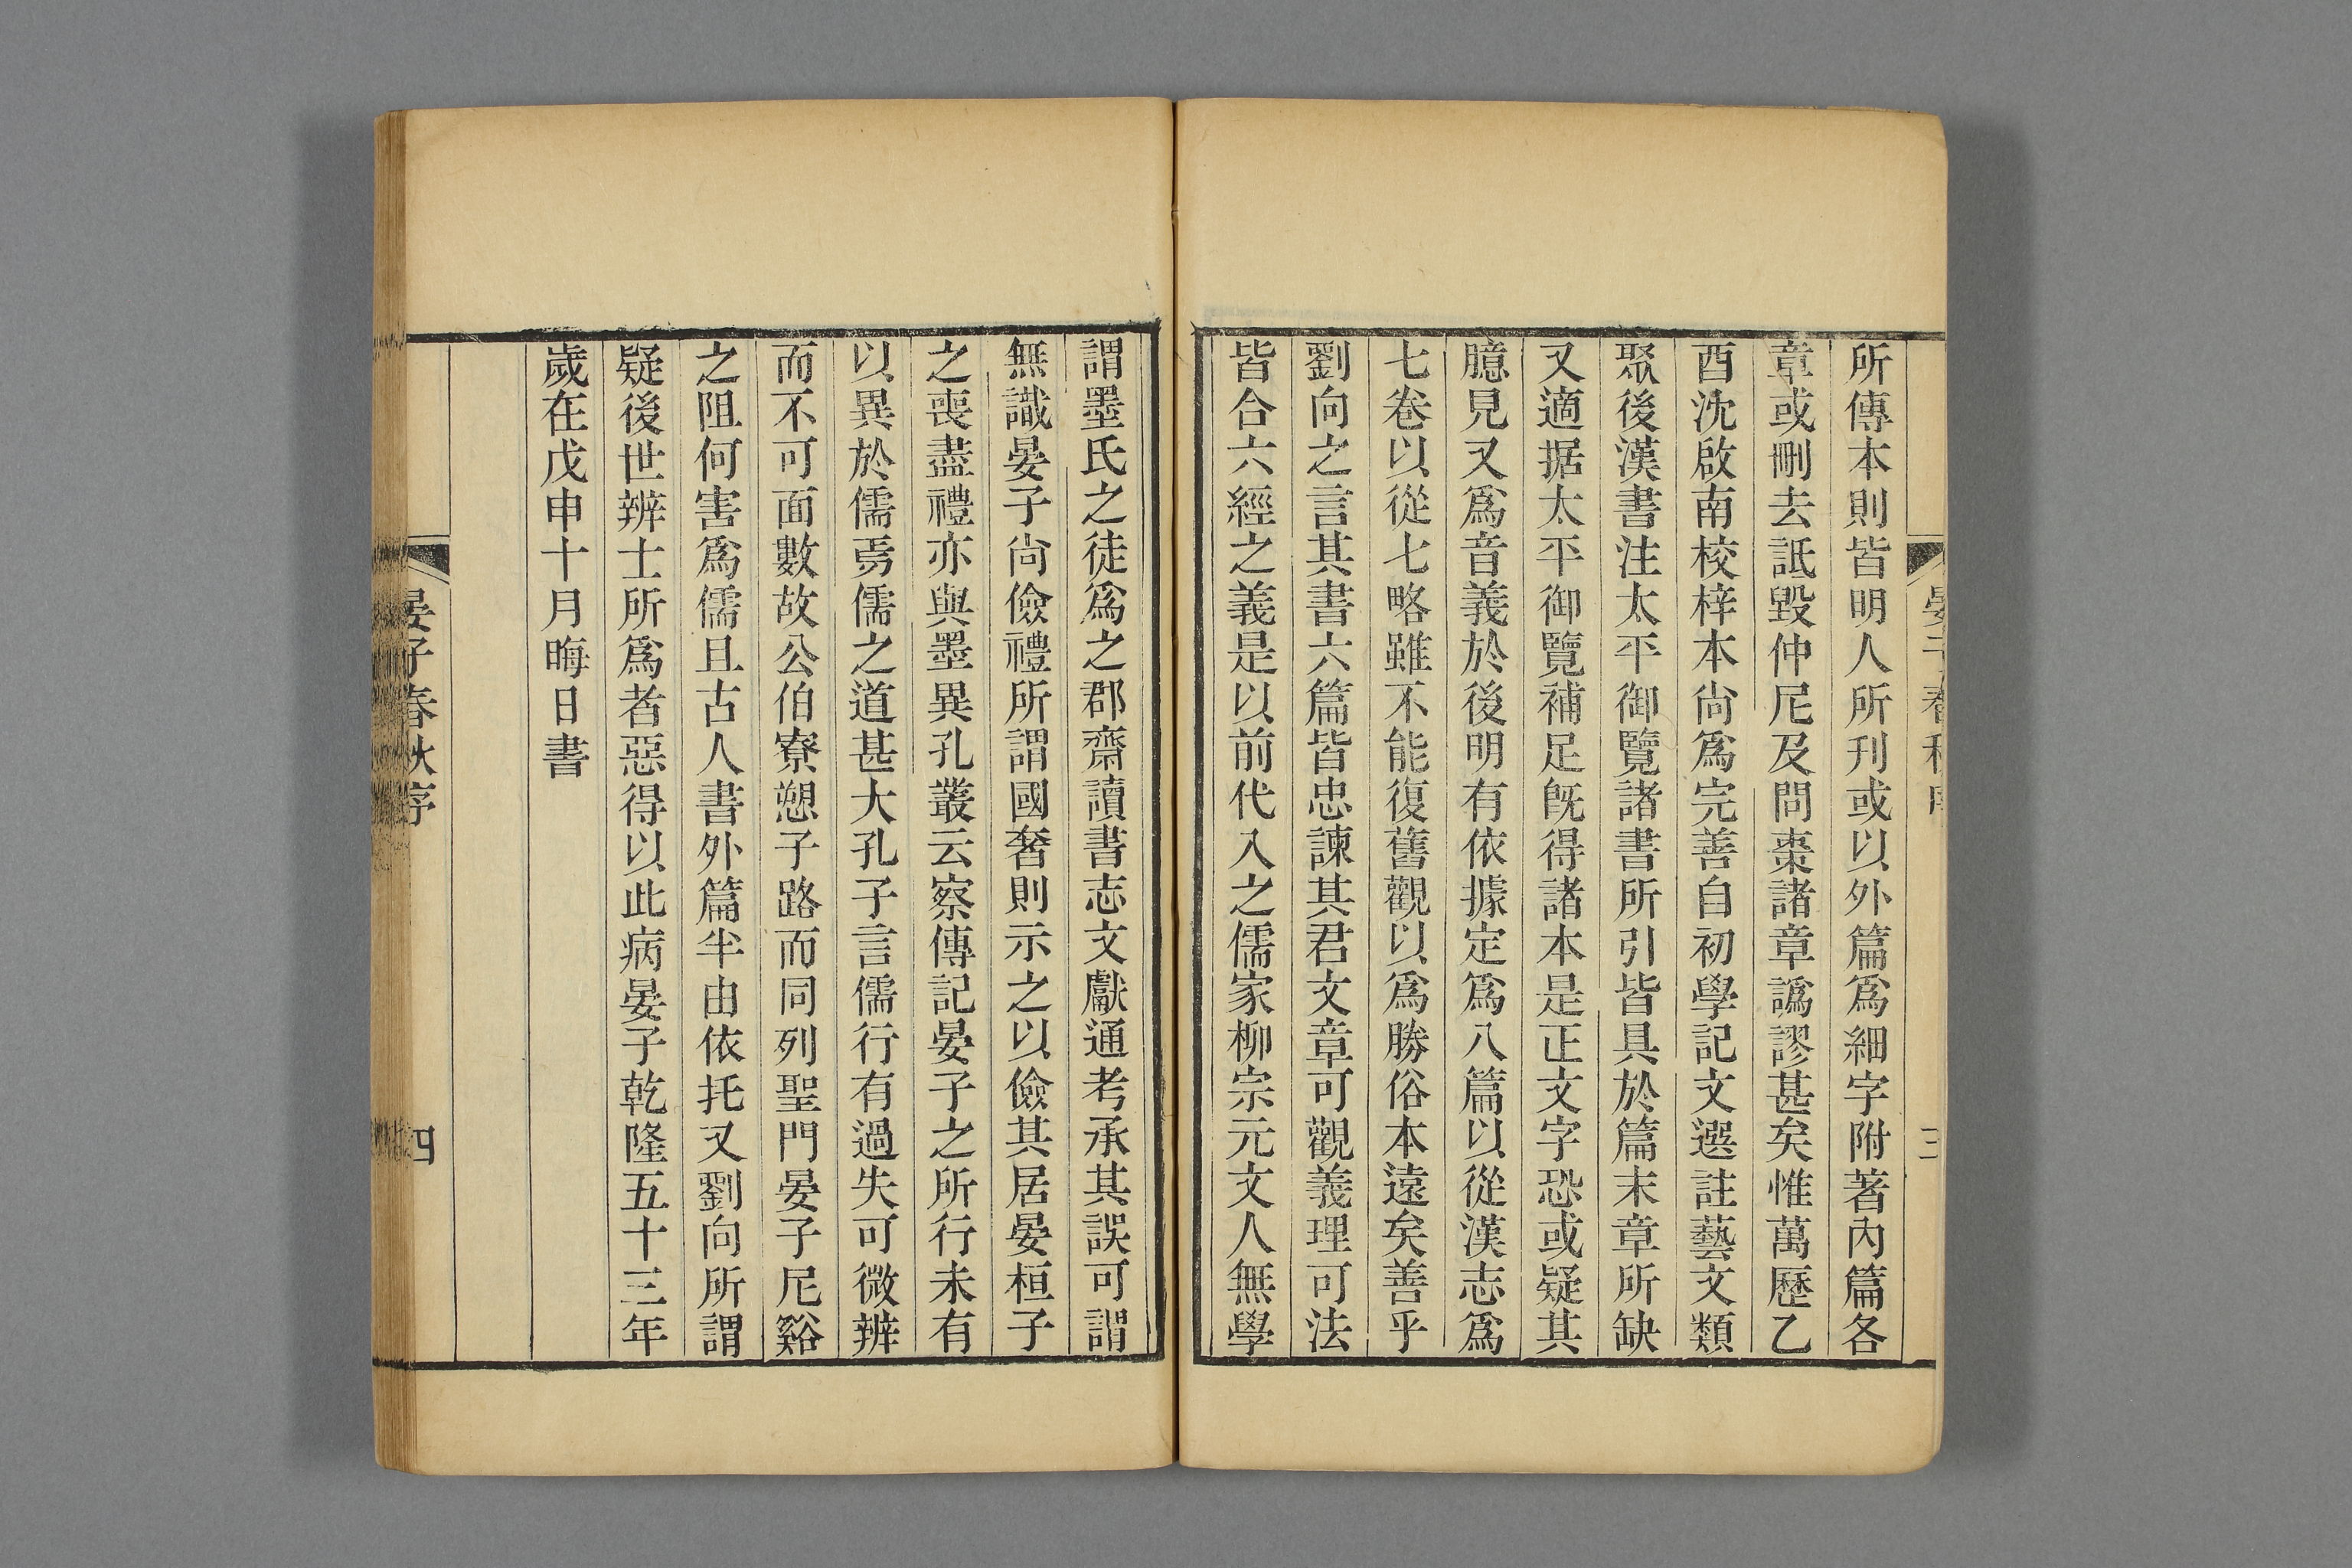 所傳本則皆明人所刊或以外篇爲細字附著內篇各
章或刪去詆毀仲尼及問棗諸章譌謬甚矣惟萬歷乙
酉沈啟南校梓本尙爲完善自初學記文選註藝文類
聚後漢書注太平御覽諸書所引皆具於篇末章所缺
又適据太平御覽補足旣得諸本是正文字恐或疑其
臆見又爲音義於後明有依據定爲八篇以從漢志爲
七卷以從七略雖不能復舊觀以爲勝俗本遠矣善乎
劉向之言其書六篇皆忠諫其君文章可觀義理可法
皆合六經之義是以前代入之儒家柳宗元文人無學
謂墨氏之徒爲之郡齋讀書志文獻通考承其誤可謂
無識晏子尙儉禮所謂國奢則示之以儉其居晏桓子
之喪盡禮亦與墨異孔叢云察傳記晏子之所行未有
以異於儒焉儒之道甚大孔子言儒行有過失可微辨
而不可面數故公伯寮愬子路而同列聖門晏子尼谿
之阻何害爲儒且古人書外篇半由依托又劉向所謂
疑後世辨士所爲者惡得以此病晏子乾隆五十三年
歲在戊申十月晦日書
晏子春秋序
四